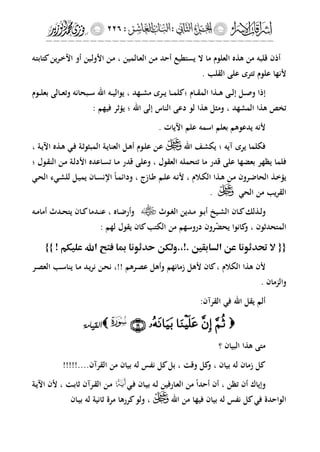 الجزء الثاني ، الباب العاشر : ٢٢٦
أذن قلبه من هذه العلوم ما لا يستطيع أحد من العالمين ، من الأولين أو الآخرين كتابته
لأنها علوم تترى على القلب .
إذا وصل إلى هذا المقام ؛ كلما يرى مشهد ، يواليه الله سبحانه وتعالى بعلوم
تخص هذا المشهد ، ومثل هذا لو دعى الناس إلى الله ؛ يؤثر فيهم :
لأنه يدعوهم بعلم اسمه علم الآيات .
فكلما يرى آيه ؛ يكشف الله عن علوم أهل العناية المبثوثة في هذه الآية ،
فلما يظهر بعضها على قدر ما تتحمله العقول ، وعلى قدر ما تساعده الأدلة من النقول ؛
يؤخذ الحاضرون من هذا الكلام ، لأنه علم طازج ، ودائماً الإنسان يميل للشيء الحي
القريب من الحي .
ولذلك كان الشيخ أبو مدين الغوث وأرضاه ، عندما كان يتحدث أمامه
المتحدثون ، وكانوا يحضّرون دروسهم من الكتب كان يقول لهم :
{{ لا تحدثونا عن السابقين ..!..ولكن حدثونا بما فتح الله عليكم ! }}
لأن هذا الكلام ، كان لأهل زمانهم وأهل عصرهم !!، نحن نريد ما يناسب العصر
والزمان .
ألم يقل الله في القرآن:
﴿ ثُمَّ إِنَّ عَلَيْنَا بَيَانَهُ ﴾ سورة القيامة
متى هذا البيان ؟
كل زمان له بيان ، وكل وقت ، بل كل نفس له بيان من القرآن....!!!!!
وإياك أن تظن ، أن أحداً من العارفين له بيان في آية من القرآن ثابت ، لأن الآية
الواحدة في كل نفس له بيان فيها من الله ، ولو كررها مرة ثانية له بيان